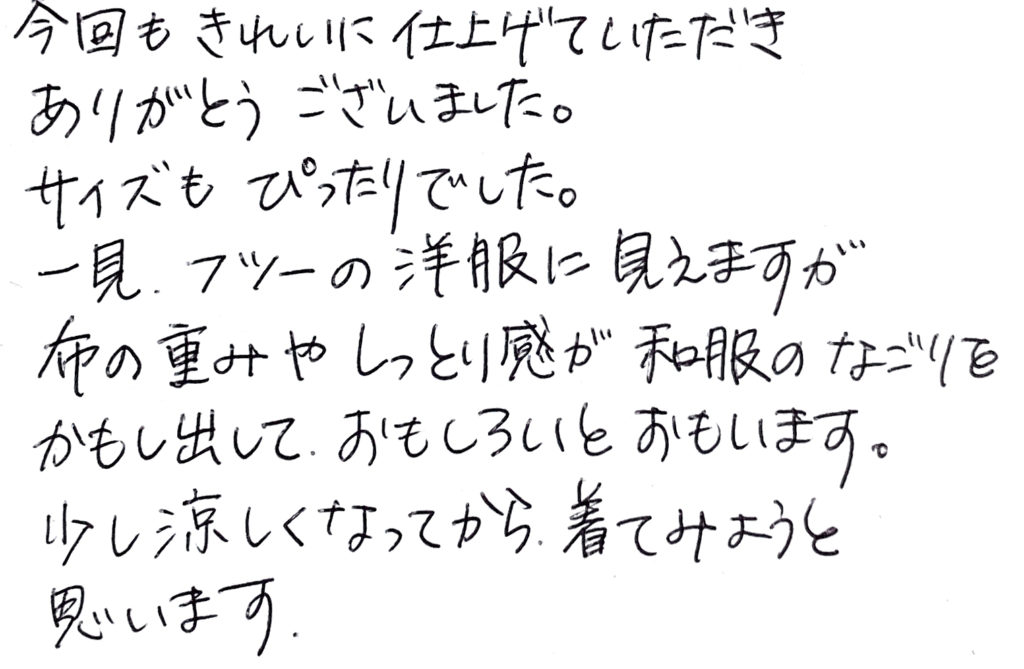 今回もきれいに仕上げていただき
ありがとうございました。
サイズもぴったりでした。
一見、フツーの洋服に見えますが
布の重みやしっとり感が和服のなごりを
かもし出して、おもしろいとおもいます。
少し涼しくなってから、着てみようと
思います.